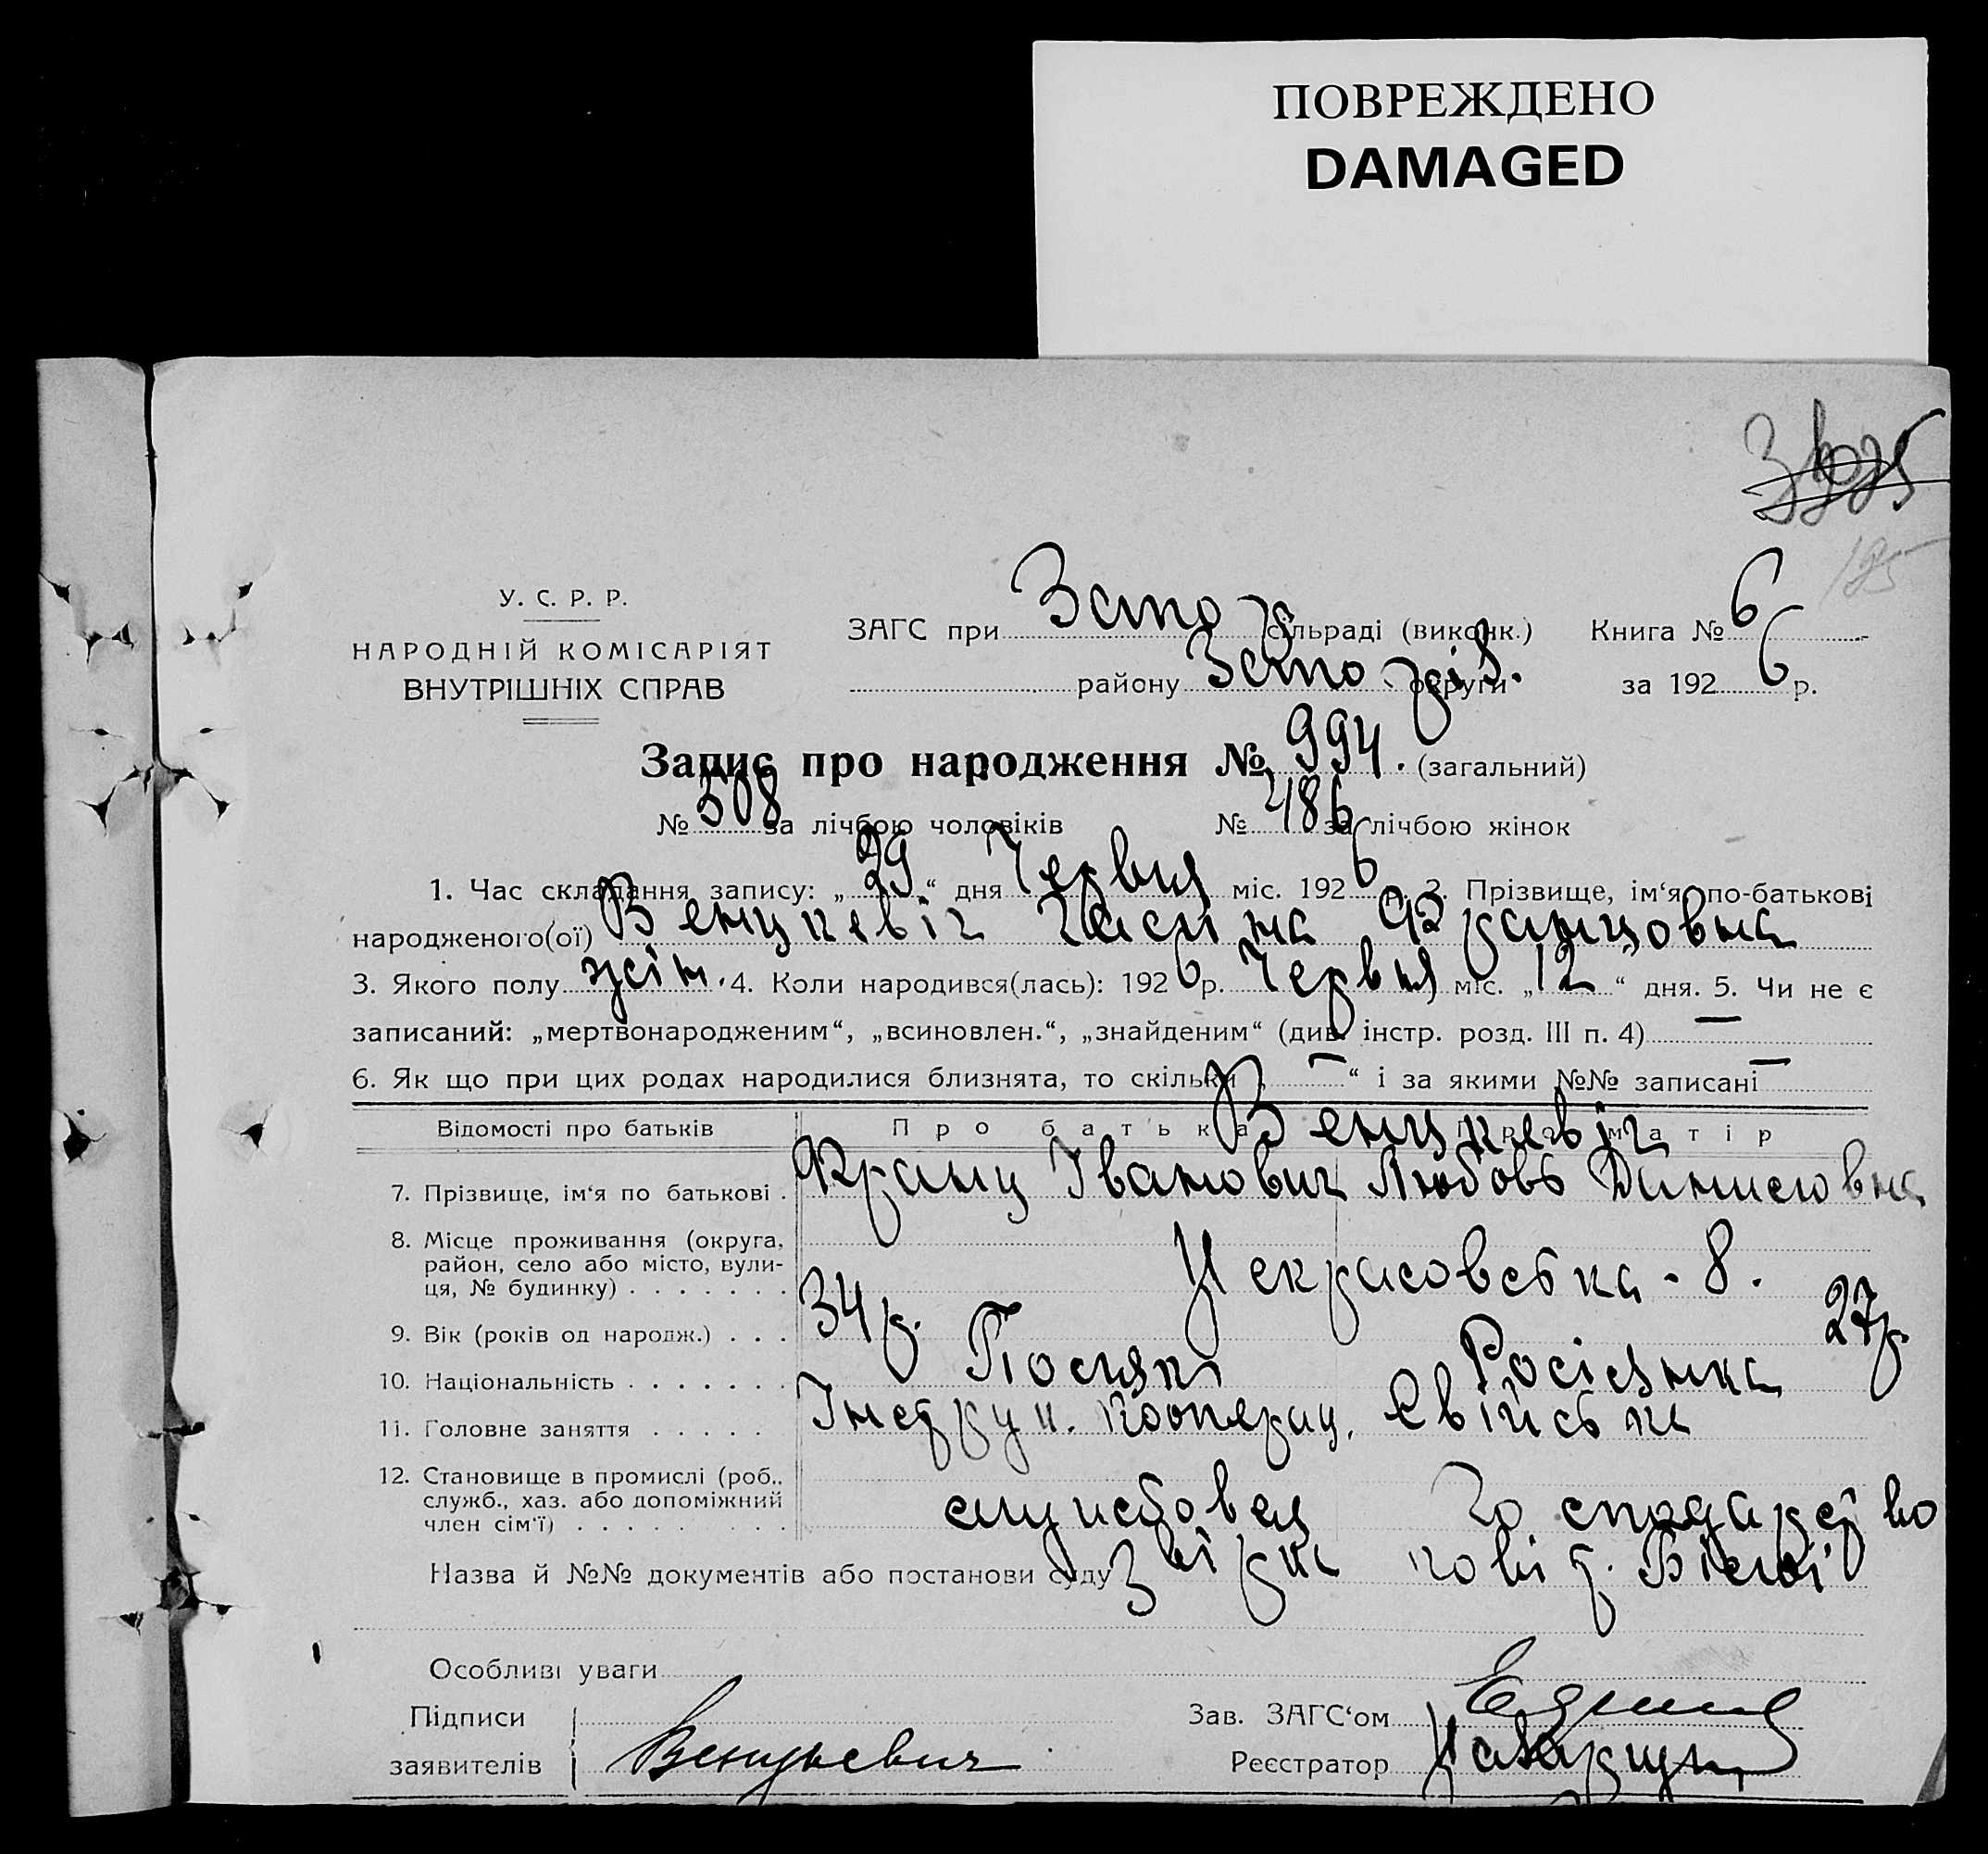 ПОВРЕЖДЕНО
DAMAGED
195
У. С. Р. Р.
НАРОДНІЙ КОМІСАРІЯТ
ВНУТРІШНІХ СПРАВ
ЗАГС при Запо сільраді (виконк.) Книга № 6
району Запоріз. округи за 192 6 р.
Запис про народження № 994. (загальний)
№ 508 за лічбою чоловіків № 486 за лічбою жінок
1. Час складання запису: „ 29 “ дня Червня міс. 192 6 р. 2. Прізвище, ім‘я по-батькові
народженого(ої) Венцкевіч Галина Францовна
3. Якого полу жін. 4. Коли народився(лась): 192 6 р. Червня міс. „ 12 “ дня. 5. Чи не є
записаний: „мертвонародженим“, „всиновлен.“, „знайденим“ (див. інстр. розд. III п. 4) —
6. Як що при цих родах народилися близнята, то скільки „ — “ і за якими №№ записані —
Відомості про батьків Про батька Про матір
Венцкевіч
7. Прізвище, ім‘я по батькові . Франц Іванович Любовь Динисовна
8. Місце проживання (округа,
район, село або місто, вули-
ця, № будинку) . . . . . . . Некрасовська - 8.
9. Вік (років од народж.) . . . 34 р. 27 р.
10. Національність . . . . . . . Поляк Росіянка
11. Головне заняття . . . . . Інструк. кооперац. Свійське
12. Становище в промислі (роб.,
служб., хаз. або допоміжний
член сім‘ї) . . . . . . . . . службовец господарство
Назва й №№ документів або постанови суду
Особливі уваги
Підписи Зав. ЗАГС‘ом
заявителів Венцкевич Реєстратор